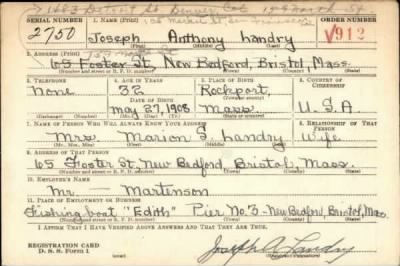 SERIAL NUMBER 1. NAME (Print) ORDER NUMBER
2750 Joseph Anthony Landry V912
(First) (Middle) (Last)
2. ADDRESS (Print)
65 Foster St, New Bedford, Bristol, Mass.
(Number and street or R. F. D. number) (Town) (County) (State)
3. TELEPHONE 4. AGE IN YEARS 5. PLACE OF BIRTH 6. COUNTRY OF CITIZENSHIP
None 32 Rockport,
DATE OF BIRTH (Town or county)
May 27, 1908 Mass. U.S.A
(Exchange) (Number) (Mo.) (Day) (Yr.) (State or country)
7. NAME OF PERSON WHO WILL ALWAYS KNOW YOUR ADDRESS 8. RELATIONSHIP OF THAT PERSON
Mrs. Marion S. Landry Wife
(Mr., Mrs., Miss) (First) (Middle) (Last)
9. ADDRESS OF THAT PERSON
65 Foster St, New Bedford, Bristol, Mass.
(Number and street or R. F. D. number) (Town) (County) (State)
10. EMPLOYER'S NAME
Mr. — Martenson
11. PLACE OF EMPLOYMENT OR BUSINESS
Fishing boat "Edith" Pier No. 3 - New Bedford, Bristol, Mass.
(Number and street or R. F. D. number) (Town) (County) (State)
I AFFIRM THAT I HAVE VERIFIED ABOVE ANSWERS AND THAT THEY ARE TRUE.
REGISTRATION CARD
D. S. S. Form 1 Joseph A Landry